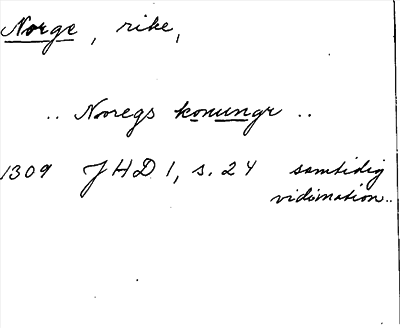 Norge, rike,
.. Noregs konungr ..
1309 JHD 1, s. 24 samtidig
vidimation..